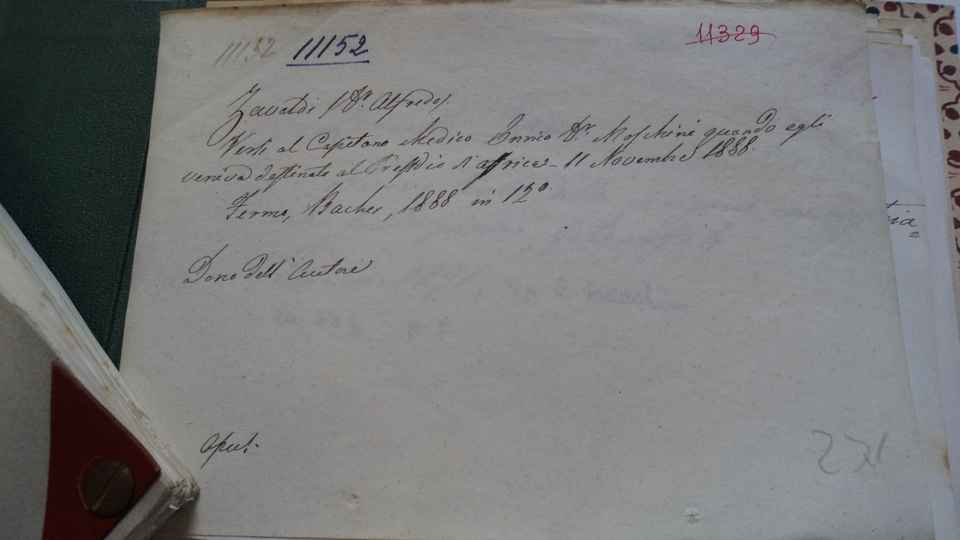 11152 11152
11329
Zavaldi (Dr. Alfredo).
Versi al Capitano Medico Ennio Dr. Moschini quando egli
veniva destinato al Presidio d'Affrica - 11 Novembre 1888.
Fermo, Bacher, 1888 in 12º
Dono dell'Autore
Opusc.